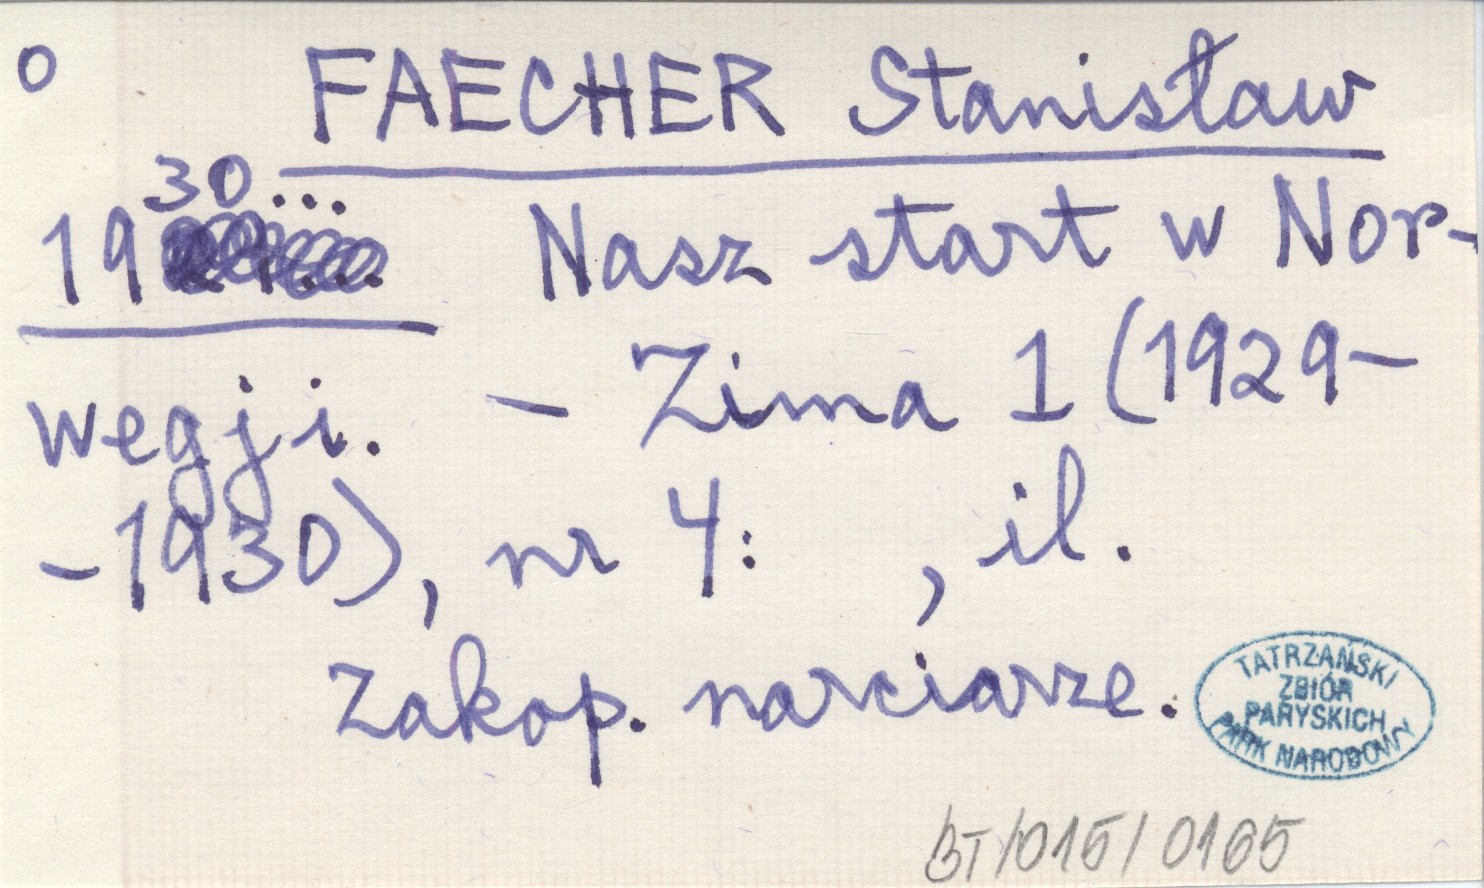 O FAECHER Stanisław
30...
19 Nasz start w Nor-
wegji. - Zima 1 (1929-
-1930), nr 4: , il.
Zakop. narciarze.
TATRZAŃSKI
ZBIÓR
PARYSKICH
PARK NARODOWY
BT/015/0165